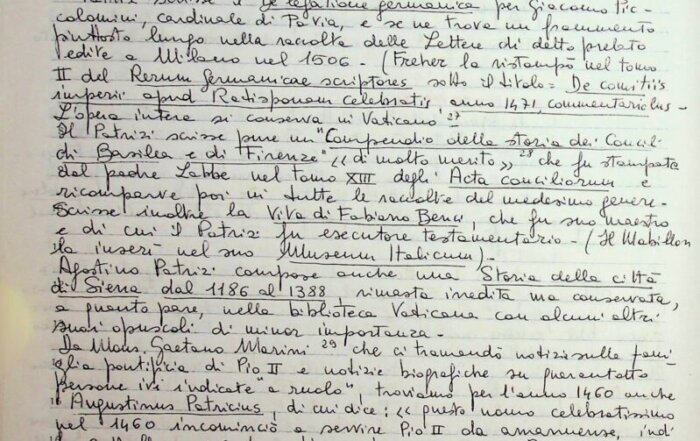 De legatione germanica per Giacomo Pic-
colomini, cardinale di Pavia, e se ne trova un frammento
piuttosto lungo nella raccolta delle Lettere di detto prelato
edite a Milano nel 1506. (Freher la ristampò nel tomo
II del Rerum germanicae scriptores sotto il titolo = De comitiis
imperii apud Ratisponam celebratis, anno 1471, commentariolus -
L'opera intera si conserva in Vaticano 27
Il Patrizi scisse pure un "Compendio della storia dei Concil
di Basilea e di Firenze" «di molto merito» 28 che fu stampato
dal padre Labbe nel tomo XIII degli Acta conciliorum e
ricomparve poi in tutte le raccolte del medesimo genere-
Scisse inoltre la Vita di Fabiano Benci, che fu suo maestro
e di cui il Patrizi fu esecutore testamentario - (Il Mabillon
la inserì nel suo Museum Italicum) -
Agostino Patrizi compose anche una Storia della città
di Siena dal 1186 al 1388, rimasta inedita ma conservata,
a quanto pare, nella biblioteca Vaticana con alcuni altri
suoi opuscoli di minor importanza -
Da Mons. Gaetano Marini 29 che ci tramandò notizie sulla fami
glia pontificia di Pio II e notizie biografiche su quarantotto
persone ivi indicate "a ruolo", troviamo per l'anno 1460 anche
"Augustinus Patricius, di cui dice: « questo uomo celebratissimo
nel 1460 incominciò a servire Pio II da amanuense, indi